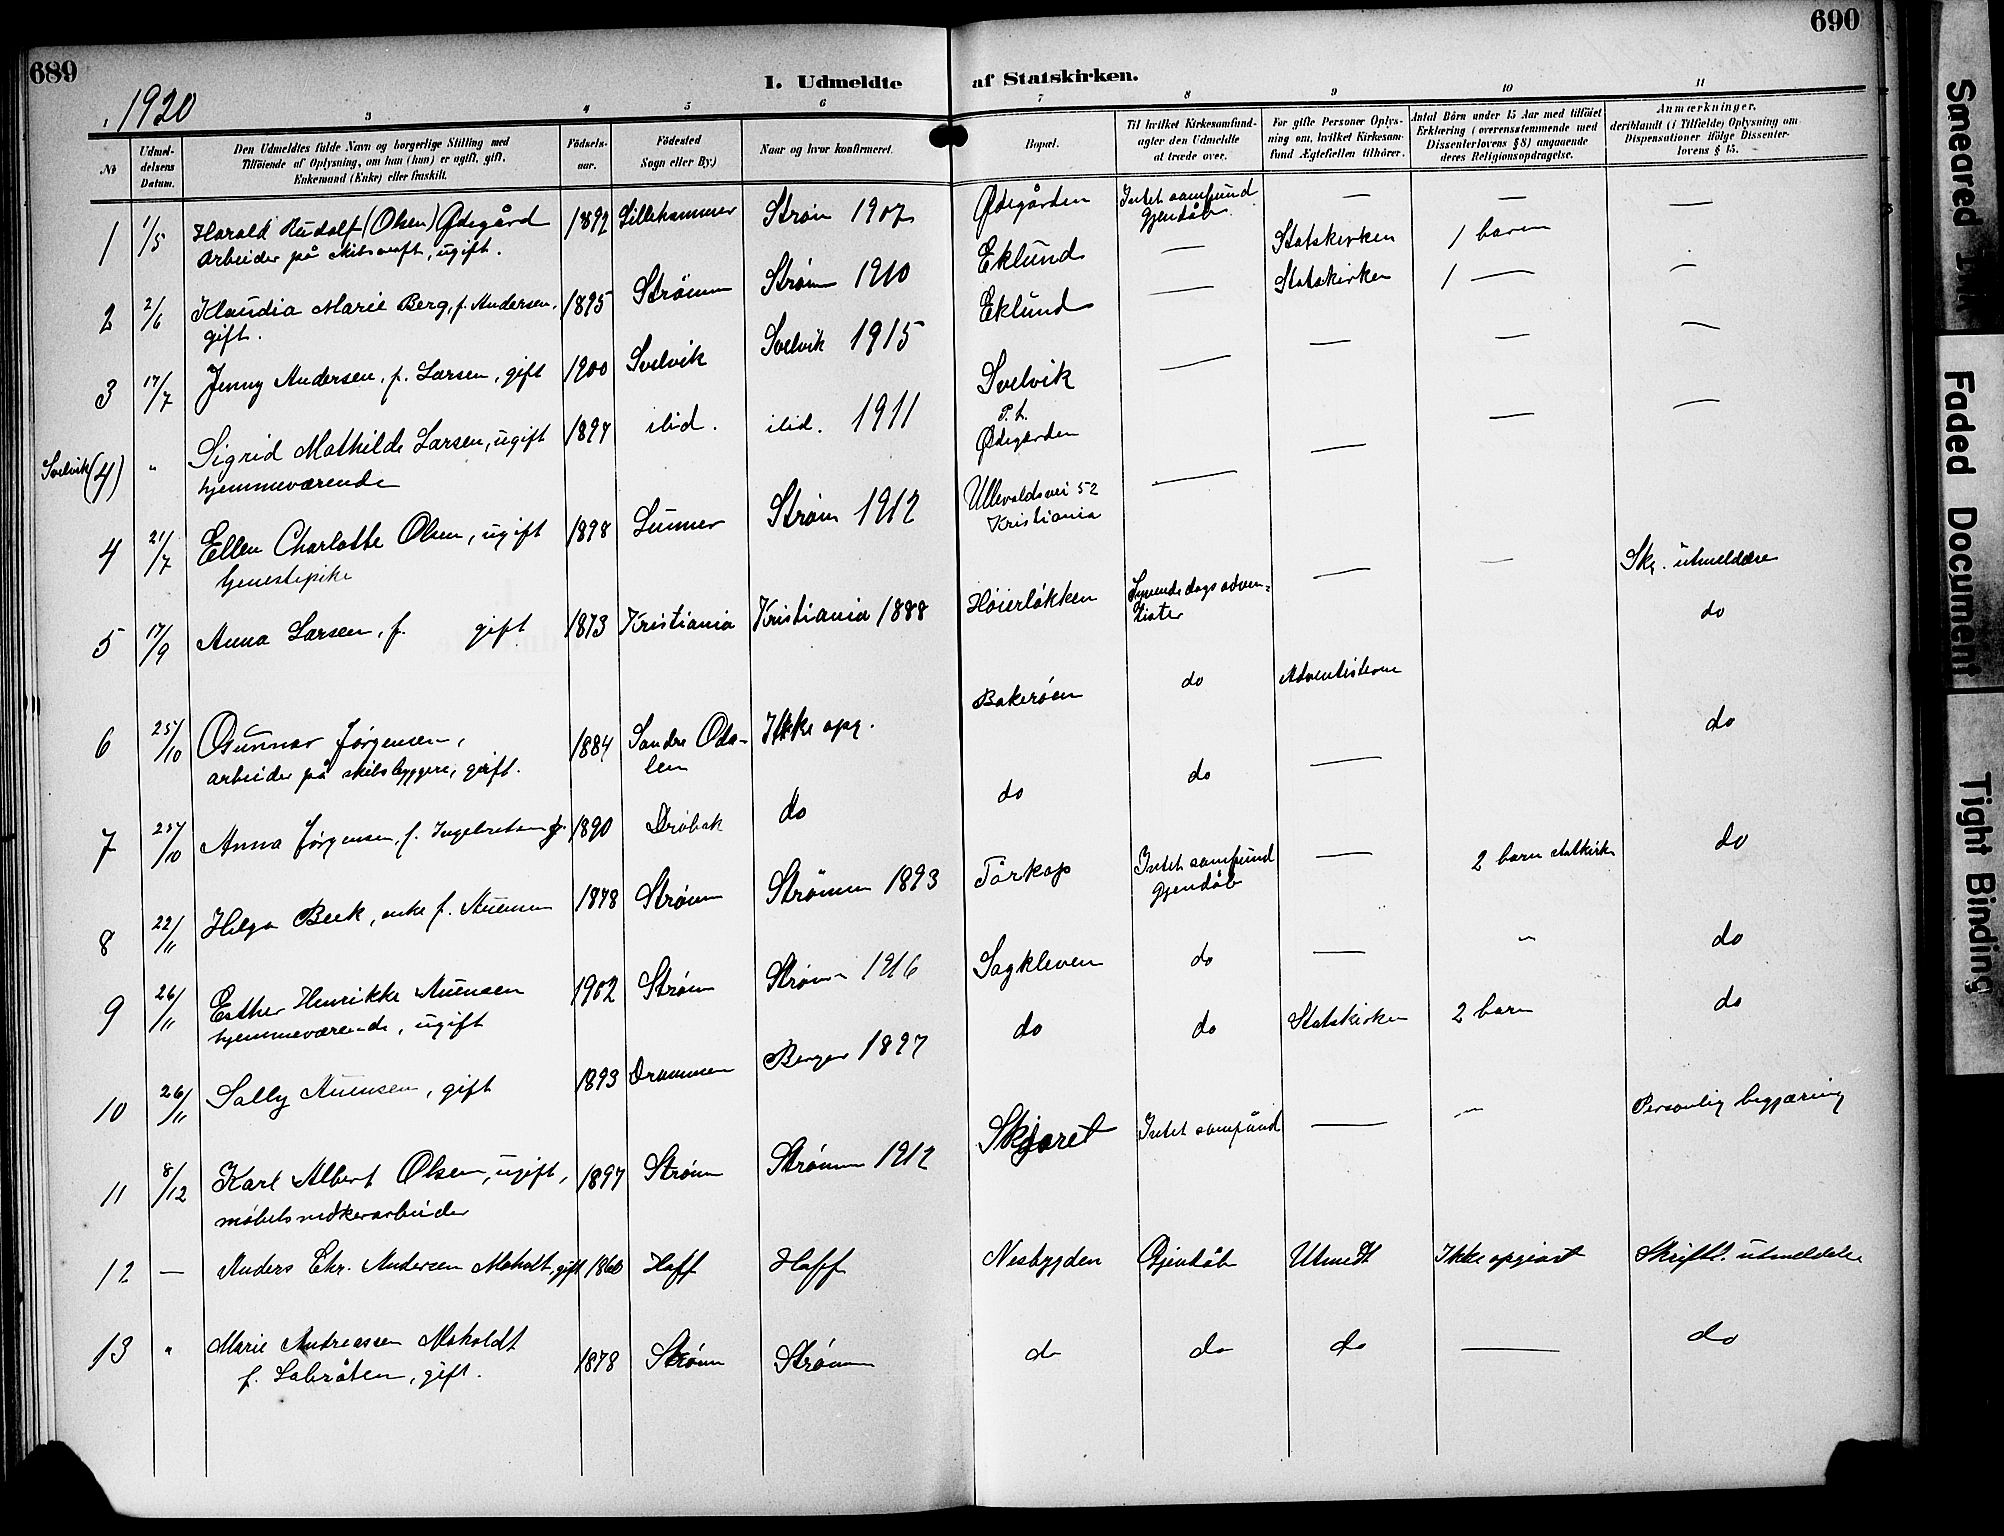 689
690
I. Udmeldte af Statskirken.
1920
3 4 5 6 7 8 9 10 11
No
Udmel-
delsens
Datum.
Den Udmeldtes fulde Navn og borgerlige Stilling med
Tilföiende af Oplysning, om han (hun) er ugift, gift,
Enkemand (Enke) eller fraskilt.
Födsels-
aar.
Födested
Sogn eller By.)
Naar og hvor konfirmeret.
Bopæl.
Til hvilket Kirkesamfund
agter den Udmeldte
at træde over.
For gifte Personer Oplys-
ning om, hvilket Kirkesam-
fund Ægtefællen tilhörer.
Antal Börn under 15 Aar med tilföiet
Erklæring (overensstemmende med
Dissenterlovens § 8) angaaende
deres Religionsopdragelse.
Anmærkninger,
deriblandt (i Tilfælde) Oplysning om
Dispensationer ifölge Dissenter-
lovens § 15.
1 1/5 Harald Rudolf (Olsen) Ødegård 1892 Lillehammer Strøm 1907 Ødegården Intet samfund — — —
arbeider på skibsverft, ugift. gjendåb.
2 2/6 Klaudia Marie Berg, f. Andersen, 1895 Strömm Strøm 1910 Eklund — Statskirken 1 barn
gift.
3 17/7 Jenny Andersen, f. Larsen, gift 1900 Svelvik Svelvik 1915 Eklund — Statskirken 1 — —
Svelvik (4) " Sigrid Mathilde Larsen, ugift 1897 ibid. ibid. 1911 Svelvik — — — —
hjemmeværende P.t.
Ødegården
4 21/7 Ellen Charlotte Olsen, ugift 1898 Lunner Strøm 1912 Ullevoldsvei 52 — — — —
tjenestepike Kristiania
5 17/9 Anna Larsen, f. gift 1873 Kristiania Kristiania 1888 Høierløkken Syvende dags adven- — — Skr. utmeldelse
tister
6 25/10 Gunnar Jørgensen, 1884 Søndre Oda- Ikke opg. Bakerøen do Adventisterne do
arbeider på skibsbyggeri, gift. len
7 25/10 Anna Jørgensen, f. Ingebretsen g. 1890 Drøbak do do do — do
8 22/11 Helga Beck, enke f. 1878 Strøm Strömm 1893 Tørkop Intet samfund — 2 barn statkirk do
gjendåb
9 26/11 Esther Henrikke 1902 Strøm Strøm 1916 Sagkleven do — " do
hjemmeværende, ugift
10 26/11 Sally , gift 1893 Drammen Berger 1897 do do Statskirken 2 barn do
11 8/12 Karl Albert Olsen, ugift, 1897 Strøm Strømm 1912 Skjæret Intet samfund — — Personlig begjæring
møbelsnedkerarbeider
12 — Anders Chr. Andersen Moholt, gift 1860 Hoff Hoff Nesbygden Gjendåb Utmeldt Ikke opgivet Skriftl. utmeldelse
13 " Marie Andreassen Moholdt 1878 Strøm Strøm do do do — do
f. Sobråten, gift.
Smeared Ink
Faded Document
Tight Binding